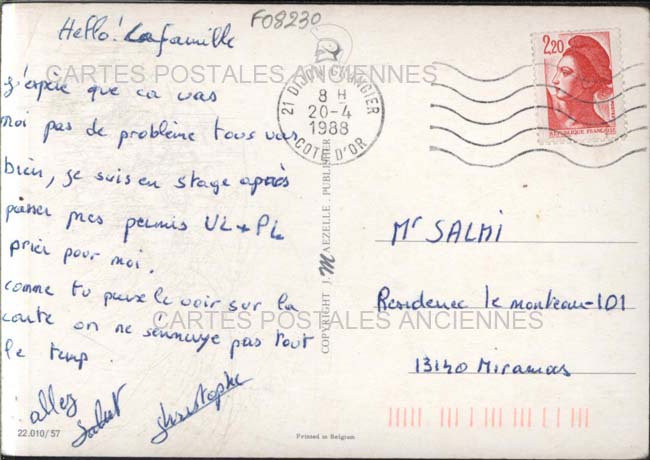 F08230
Hello! La famille
j'espère que ca vas
moi pas de problème tous vas
bien, je suis en stage après
passer mes permis VL + PL
prier pour moi.
comme tu peux le voir sur la
carte on ne s'ennuye pas tout
le temp.
allez
salut
christophe
CARTES POSTALES ANCIENNES
CARTES POSTALES ANCIENNES
21 DIJON GRANGIER
8 H
20-4
1988
COTE D'OR
2,20
REPUBLIQUE FRANÇAISE
Mr SALMI
Residence le monteau-101
13140 Miramas
COPYRIGHT J. MAEZELLE. PUBLISHER
22.010/57
Printed in Belgium